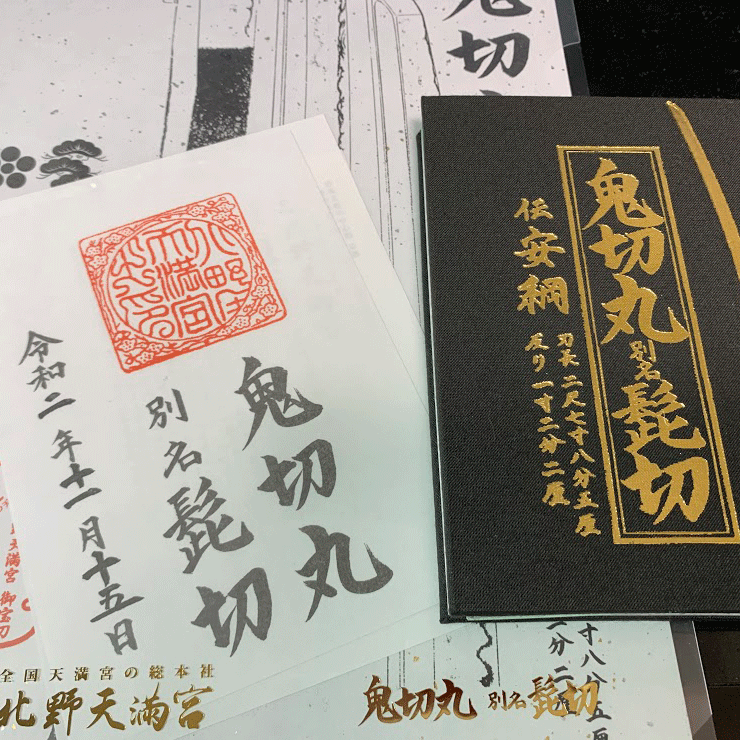 鬼切丸
別名
髭切
伝安綱
刃長二尺七寸八分五厘
反り一寸二分二厘
鬼切丸
別名
髭切
令和二年十一月十五日
北野天満宮
鬼切
天満宮 御宝刀
全国天満宮の総本社
北野天満宮
鬼切丸 別名 髭切
寸八分五厘
一分二